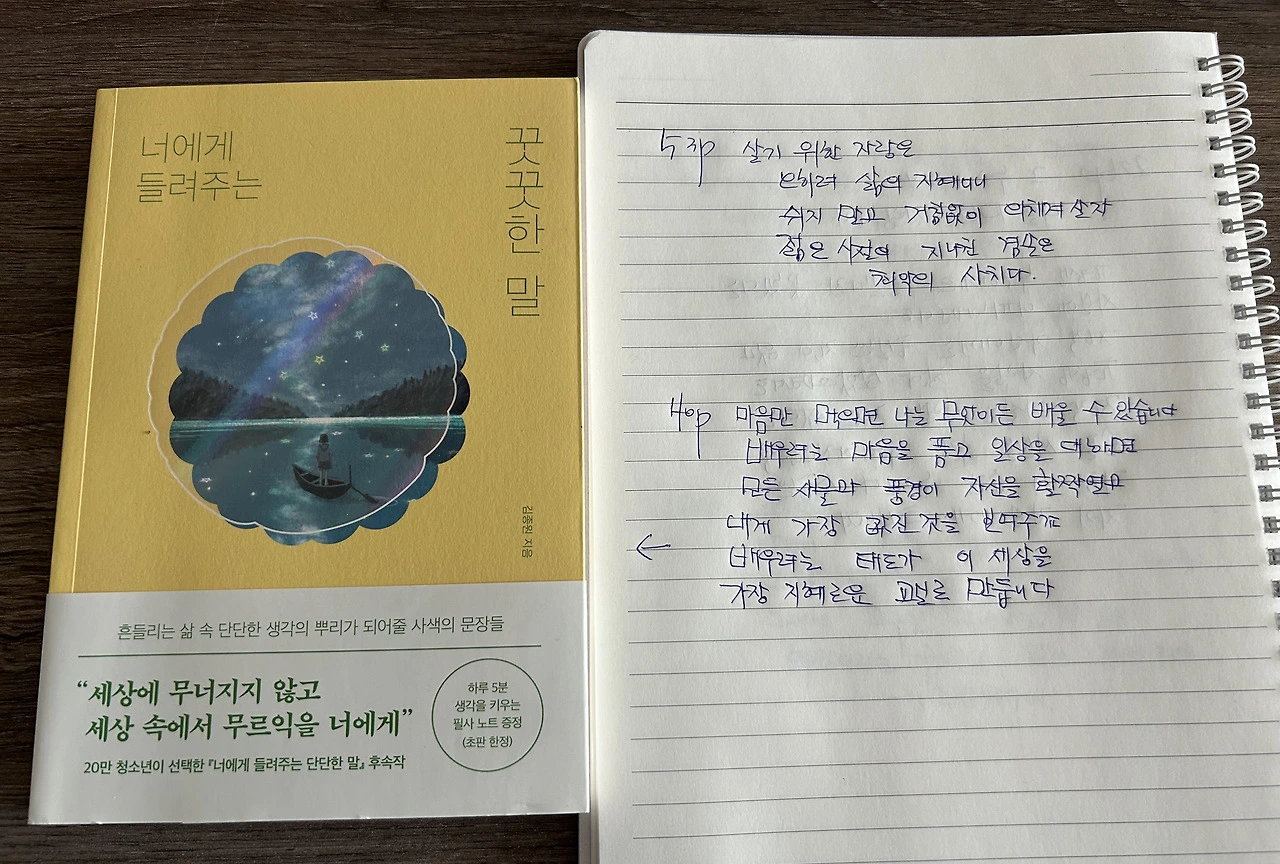 너에게
들려주는
꿋꿋한 말
김종원 지음
흔들리는 삶 속 단단한 생각의 뿌리가 되어줄 사색의 문장들
“세상에 무너지지 않고
세상 속에서 무르익을 너에게”
20만 청소년이 선택한 『너에게 들려주는 단단한 말』 후속작
하루 5분
생각을 키우는
필사 노트 증정
(초판 한정)
살기 위한 자랑은
오히려 삶의 지혜다니
쉬지 말고 거침없이 외치며 살자
젊은 시절의 지나친 겸손은
최악의 사치다.
마음만 먹으면 나는 무엇이든 배울 수 있습니다
배우려는 마음을 품고 일상을 대하면
모든 사물과 풍경이 자신을 활짝 열고
내게 가장 값진 것을 보여주고
← 배우려는 태도가 이 세상을
가장 지혜로운 교실로 만듭니다